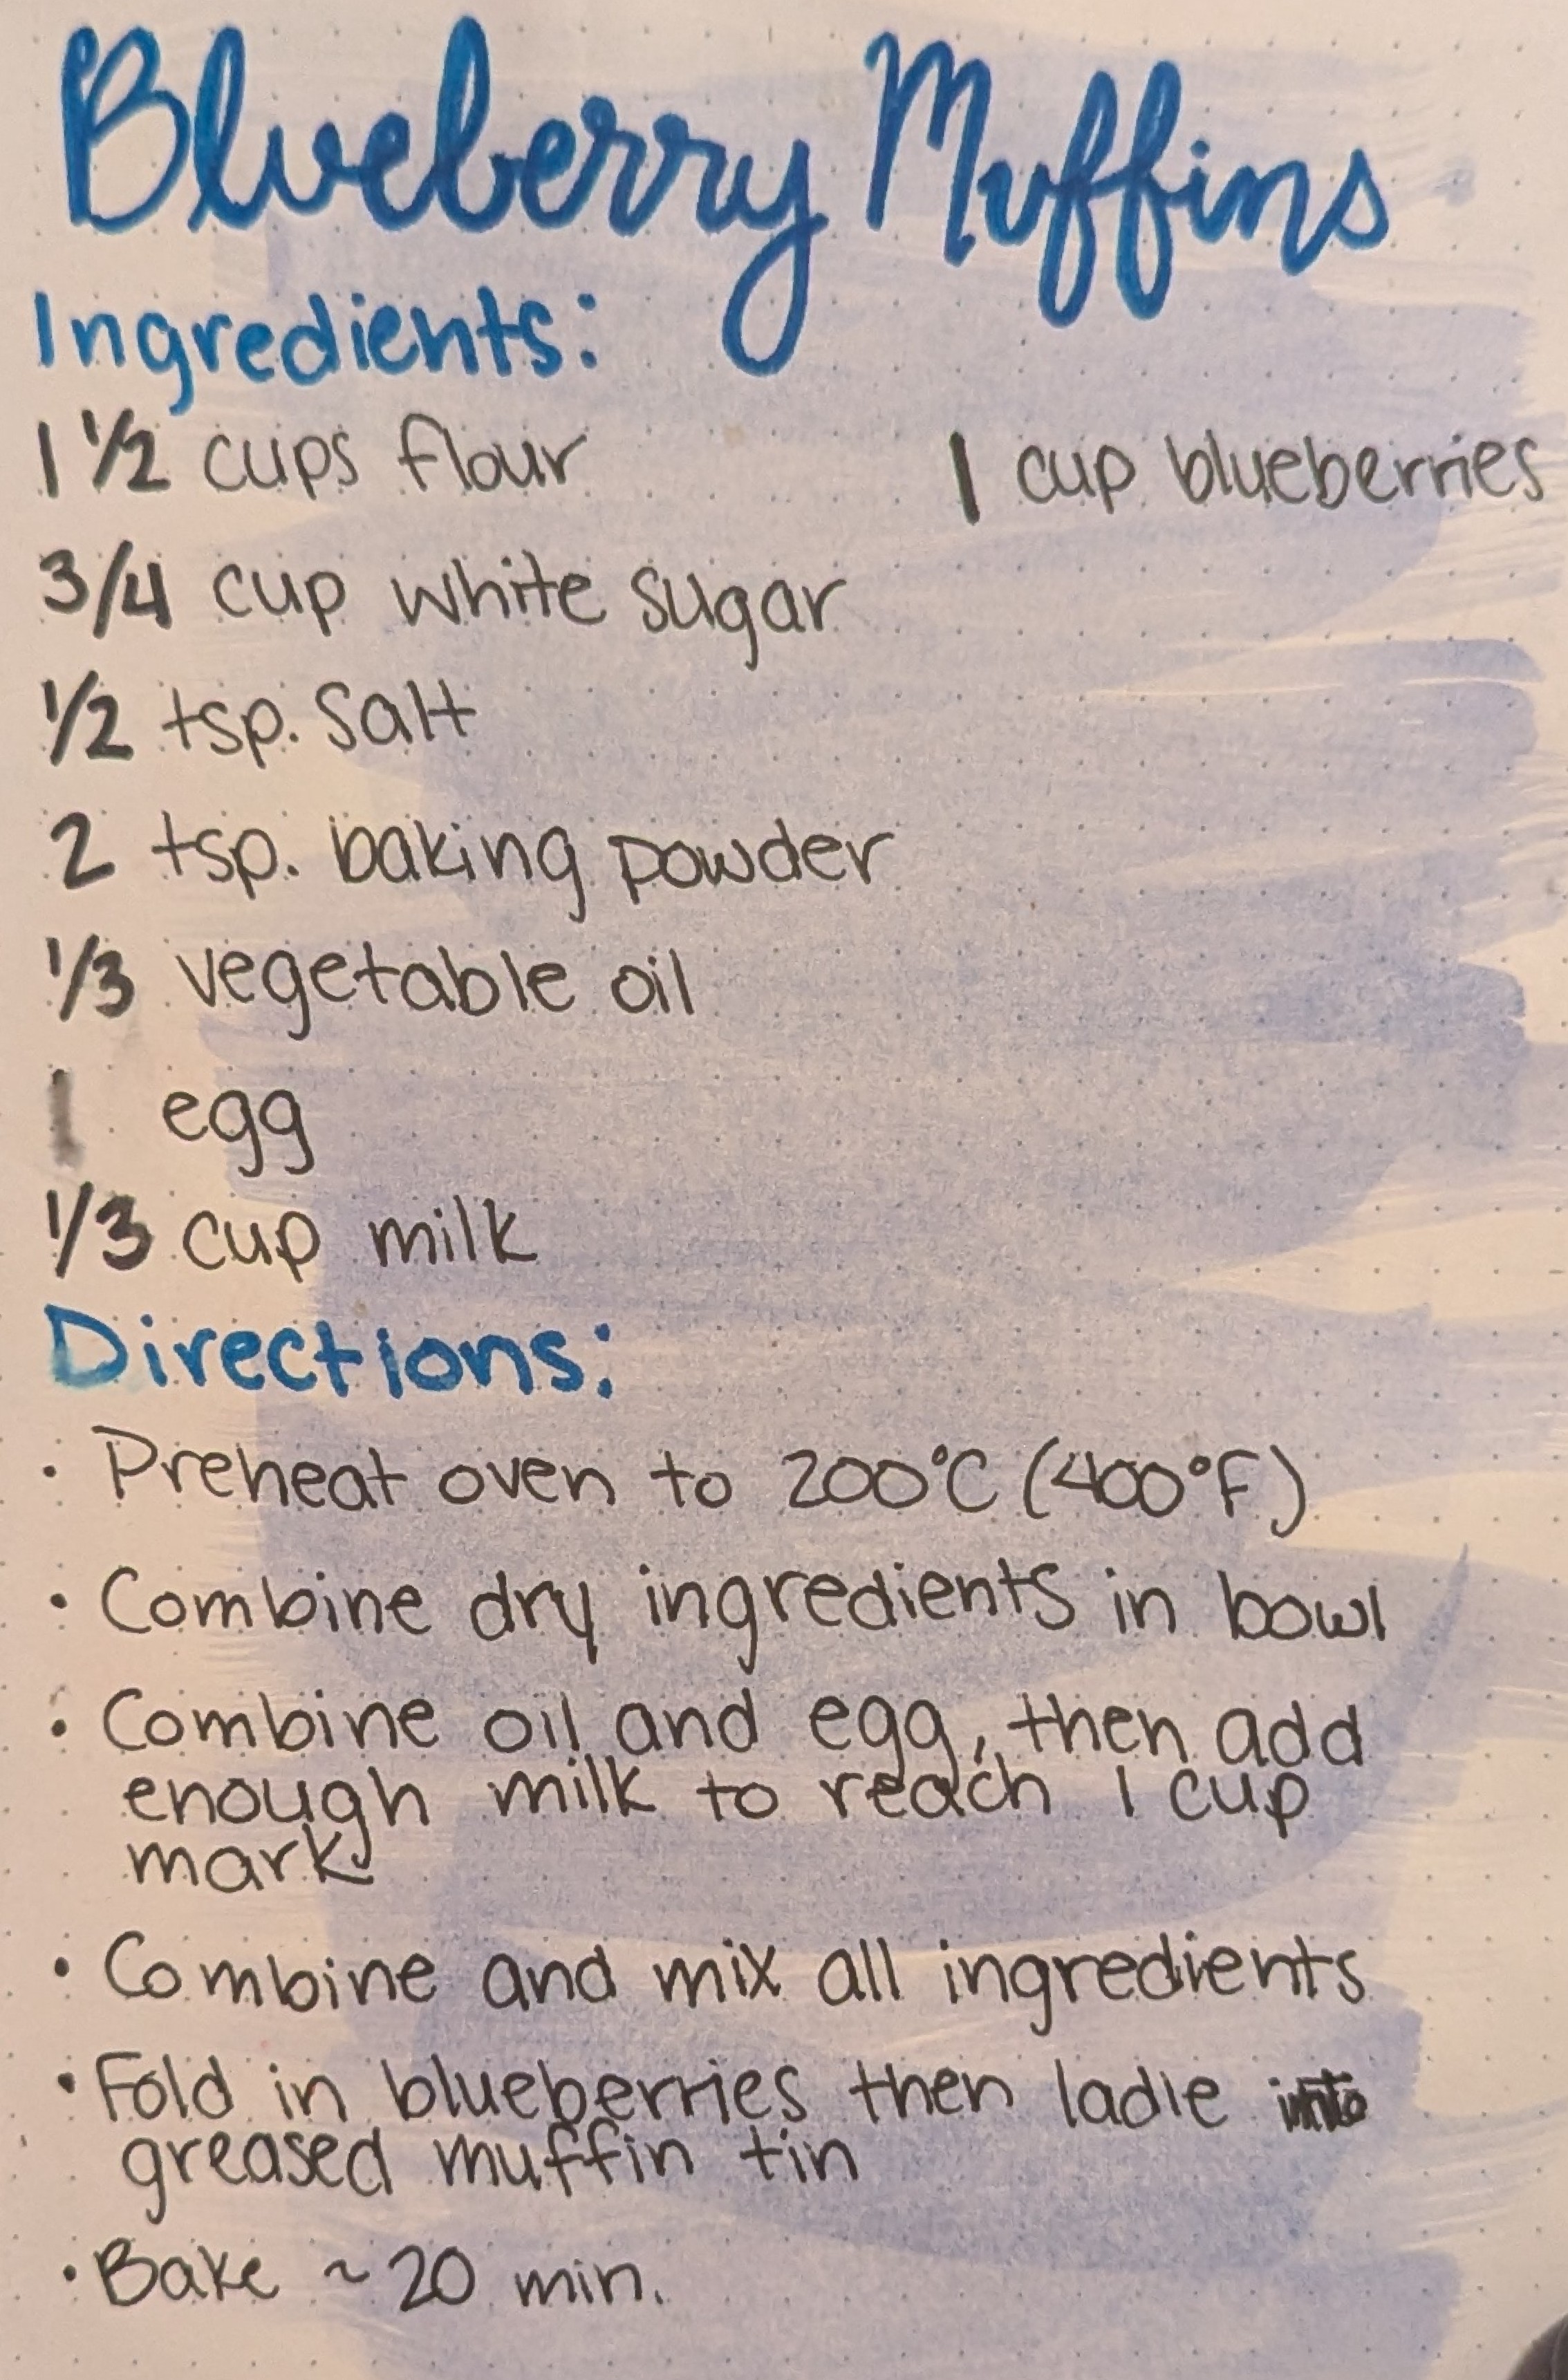 Blueberry Muffins
Ingredients:
1 1/2 cups flour
1 cup blueberries
3/4 cup white sugar
1/2 tsp. salt
2 tsp. baking powder
1/3 vegetable oil
1 egg
1/3 cup milk
Directions:
· Preheat oven to 200°C (400°F)
· Combine dry ingredients in bowl
· Combine oil and egg, then add
enough milk to reach 1 cup
mark
· Combine and mix all ingredients
· Fold in blueberries then ladle into
greased muffin tin
· Bake ~20 min.